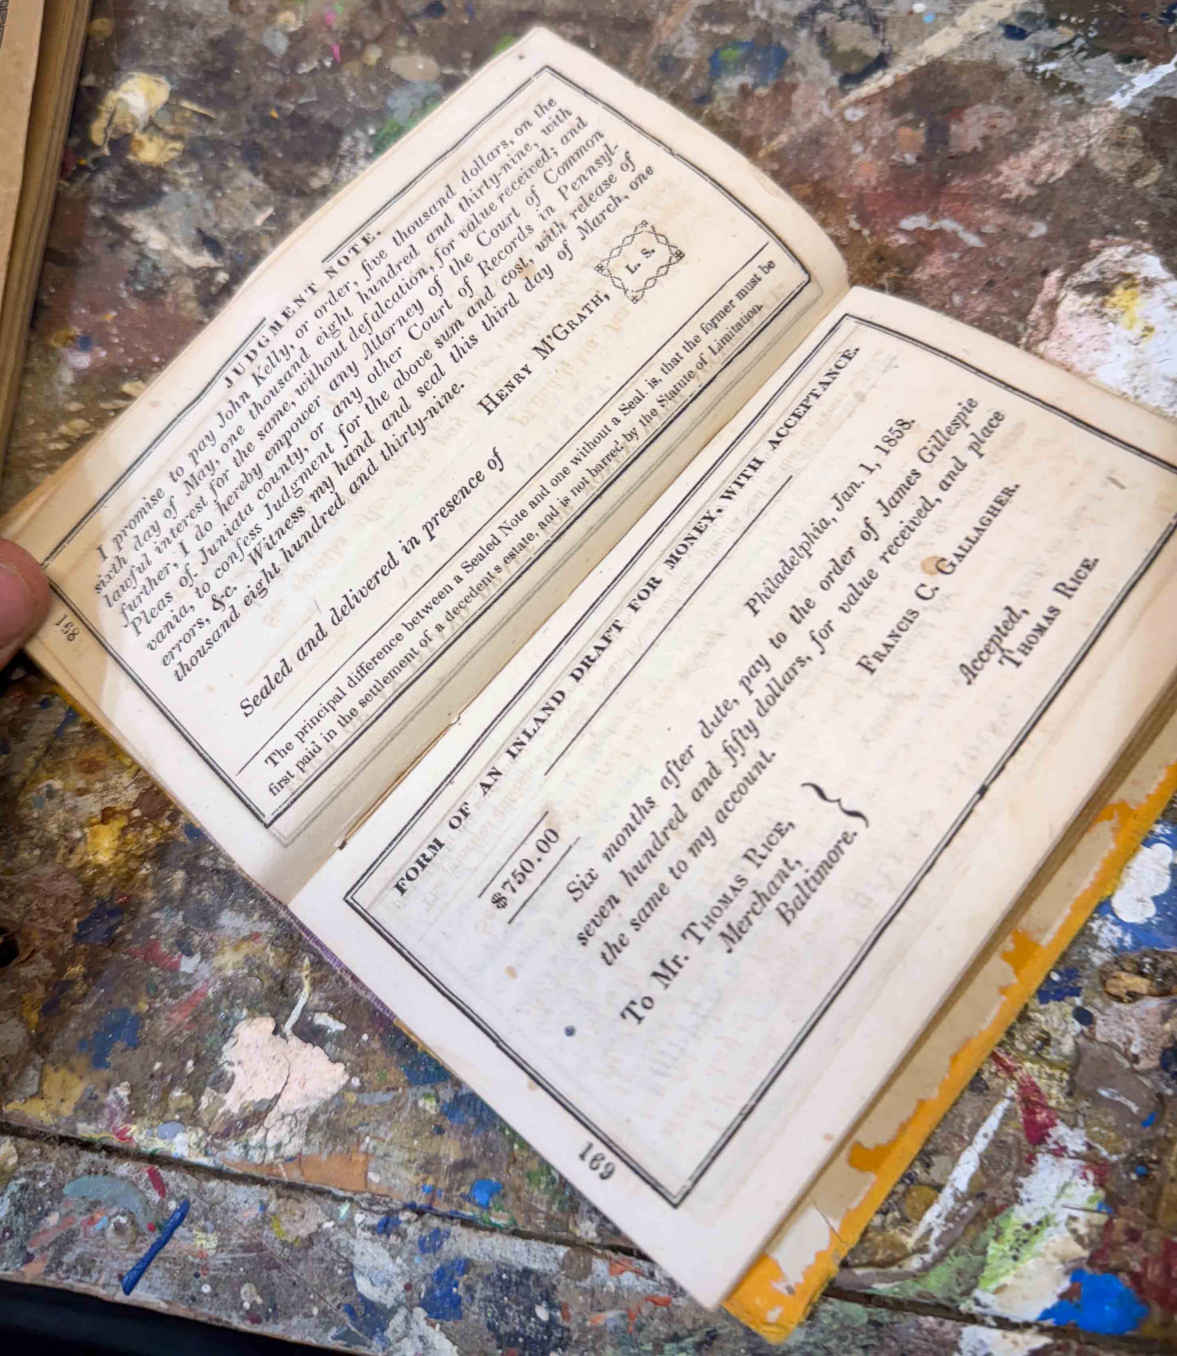 JUDGMENT NOTE.
I promise to pay John Kelly, or order, five thousand dollars, on the
sixth day of May, one thousand eight hundred and thirty-nine, with
lawful interest for the same, without defalcation, for value received; and
further, I do hereby empower any Attorney of the Court of Common
Pleas of Juniata county, or any other Court of Records in Pennsyl-
vania, to confess Judgment for the above sum and cost, with release of
errors, &c. Witness my hand and seal this third day of March, one
thousand eight hundred and thirty-nine.
HENRY M'GRATH,
L. S.
Sealed and delivered in presence of
The principal difference between a Sealed Note and one without a Seal, is, that the former must be
first paid in the settlement of a decedent's estate, and is not barred by the Statute of Limitation.
168
FORM OF AN INLAND DRAFT FOR MONEY, WITH ACCEPTANCE.
$750.00
Philadelphia, Jan. 1, 1858.
Six months after date, pay to the order of James Gillespie
seven hundred and fifty dollars, for value received, and place
the same to my account.
FRANCIS C. GALLAGHER.
To Mr. THOMAS RICE,
Merchant,
Baltimore.
Accepted,
THOMAS RICE.
169